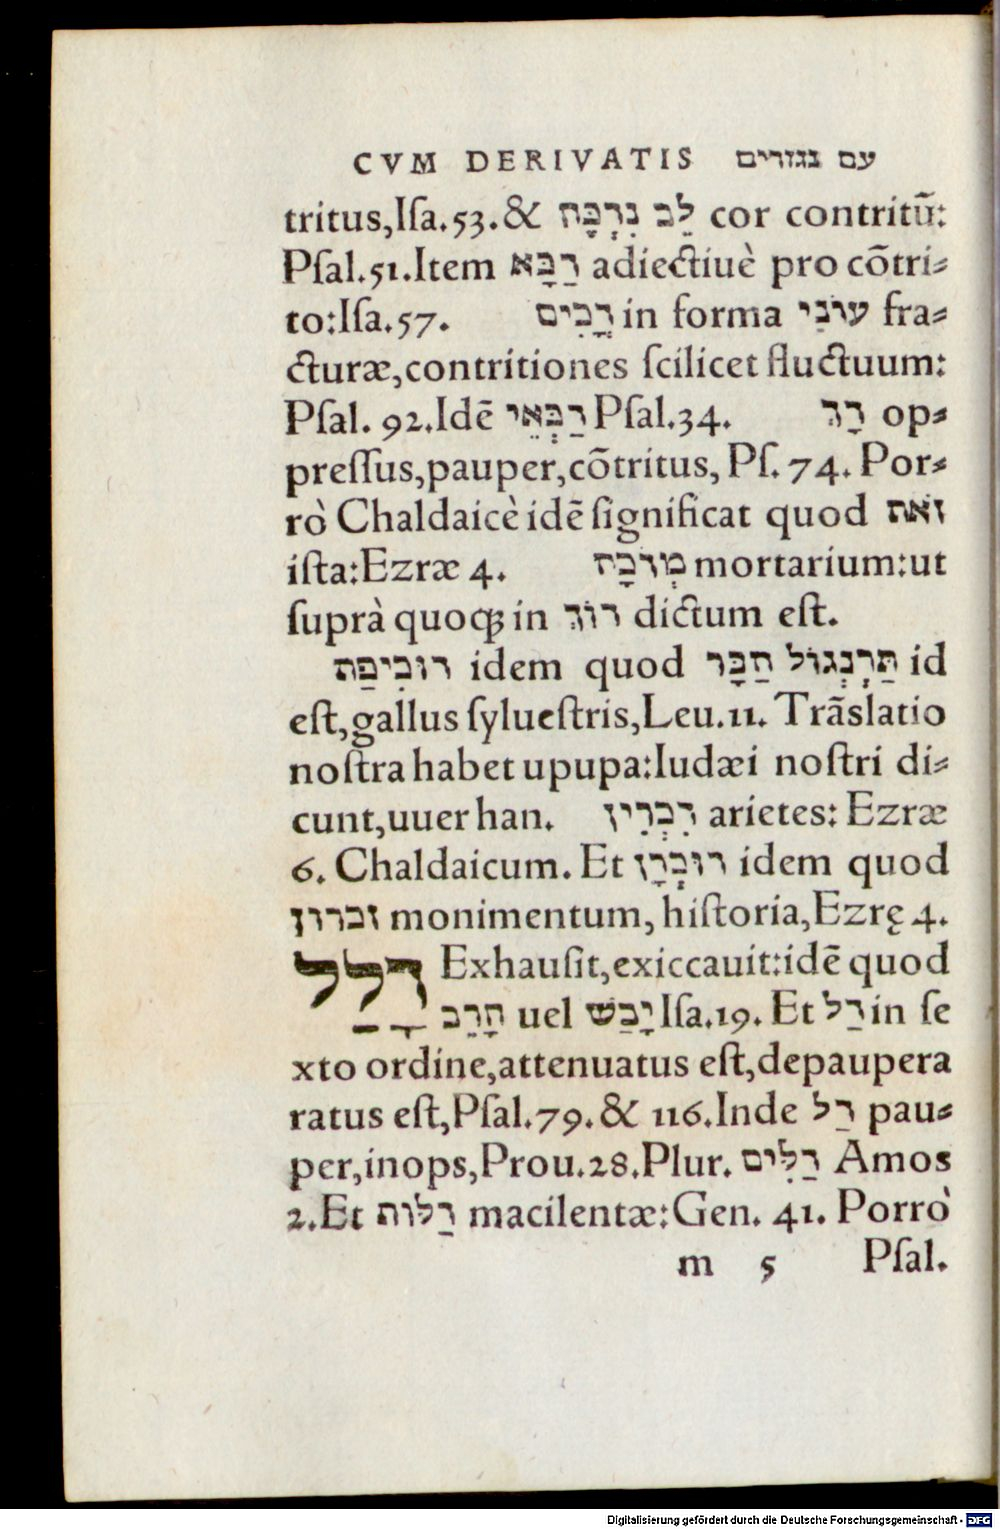 CVM DERIVATIS עם נגזרים
tritus,Iſa.53.& לֵב נִדְכָּה cor contritũ:
Pſal.51.Item דַכָּא adiectiuè pro cõtri⸗
to:Iſa.57. דֳכִים in forma עוֹנִי fra⸗
cturæ,contritiones ſcilicet fluctuum:
Pſal. 92.Idẽ דַכְּאֵי Pſal.34. דָךְ op⸗
preſſus,pauper,cõtritus, Pſ. 74. Por⸗
rò Chaldaicè idẽ ſignificat quod זֹאת
iſta:Ezræ 4. מְדוֹכָה mortarium:ut
ſuprà quoqꝫ in דוֹךְ dictum eſt.
דוּכִיפַת idem quod תַּרְנְגוֹל הַבָּר id
eſt,gallus ſylueſtris,Leu.11. Trãslatio
noſtra habet upupa:Iudæi noſtri di⸗
cunt,uuer han. דִכְרִין arietes: Ezræ
6. Chaldaicum. Et דוּכְרָן idem quod
זכרון monimentum, hiſtoria,Ezrę 4.
דָלַל Exhauſit,exiccauit:idẽ quod
חָרֵב uel יָבַשׁ Iſa.19. Et דַל in ſe
xto ordine,attenuatus eſt,depaupera
ratus eſt,Pſal.79.& 116.Inde דַל pau⸗
per,inops,Prou.28.Plur. דַלִים Amos
2.Et דַלוֹת macilentæ:Gen. 41. Porrò
m 5 Pſal.
Digitalisierung gefördert durch die Deutsche Forschungsgemeinschaft - DFG